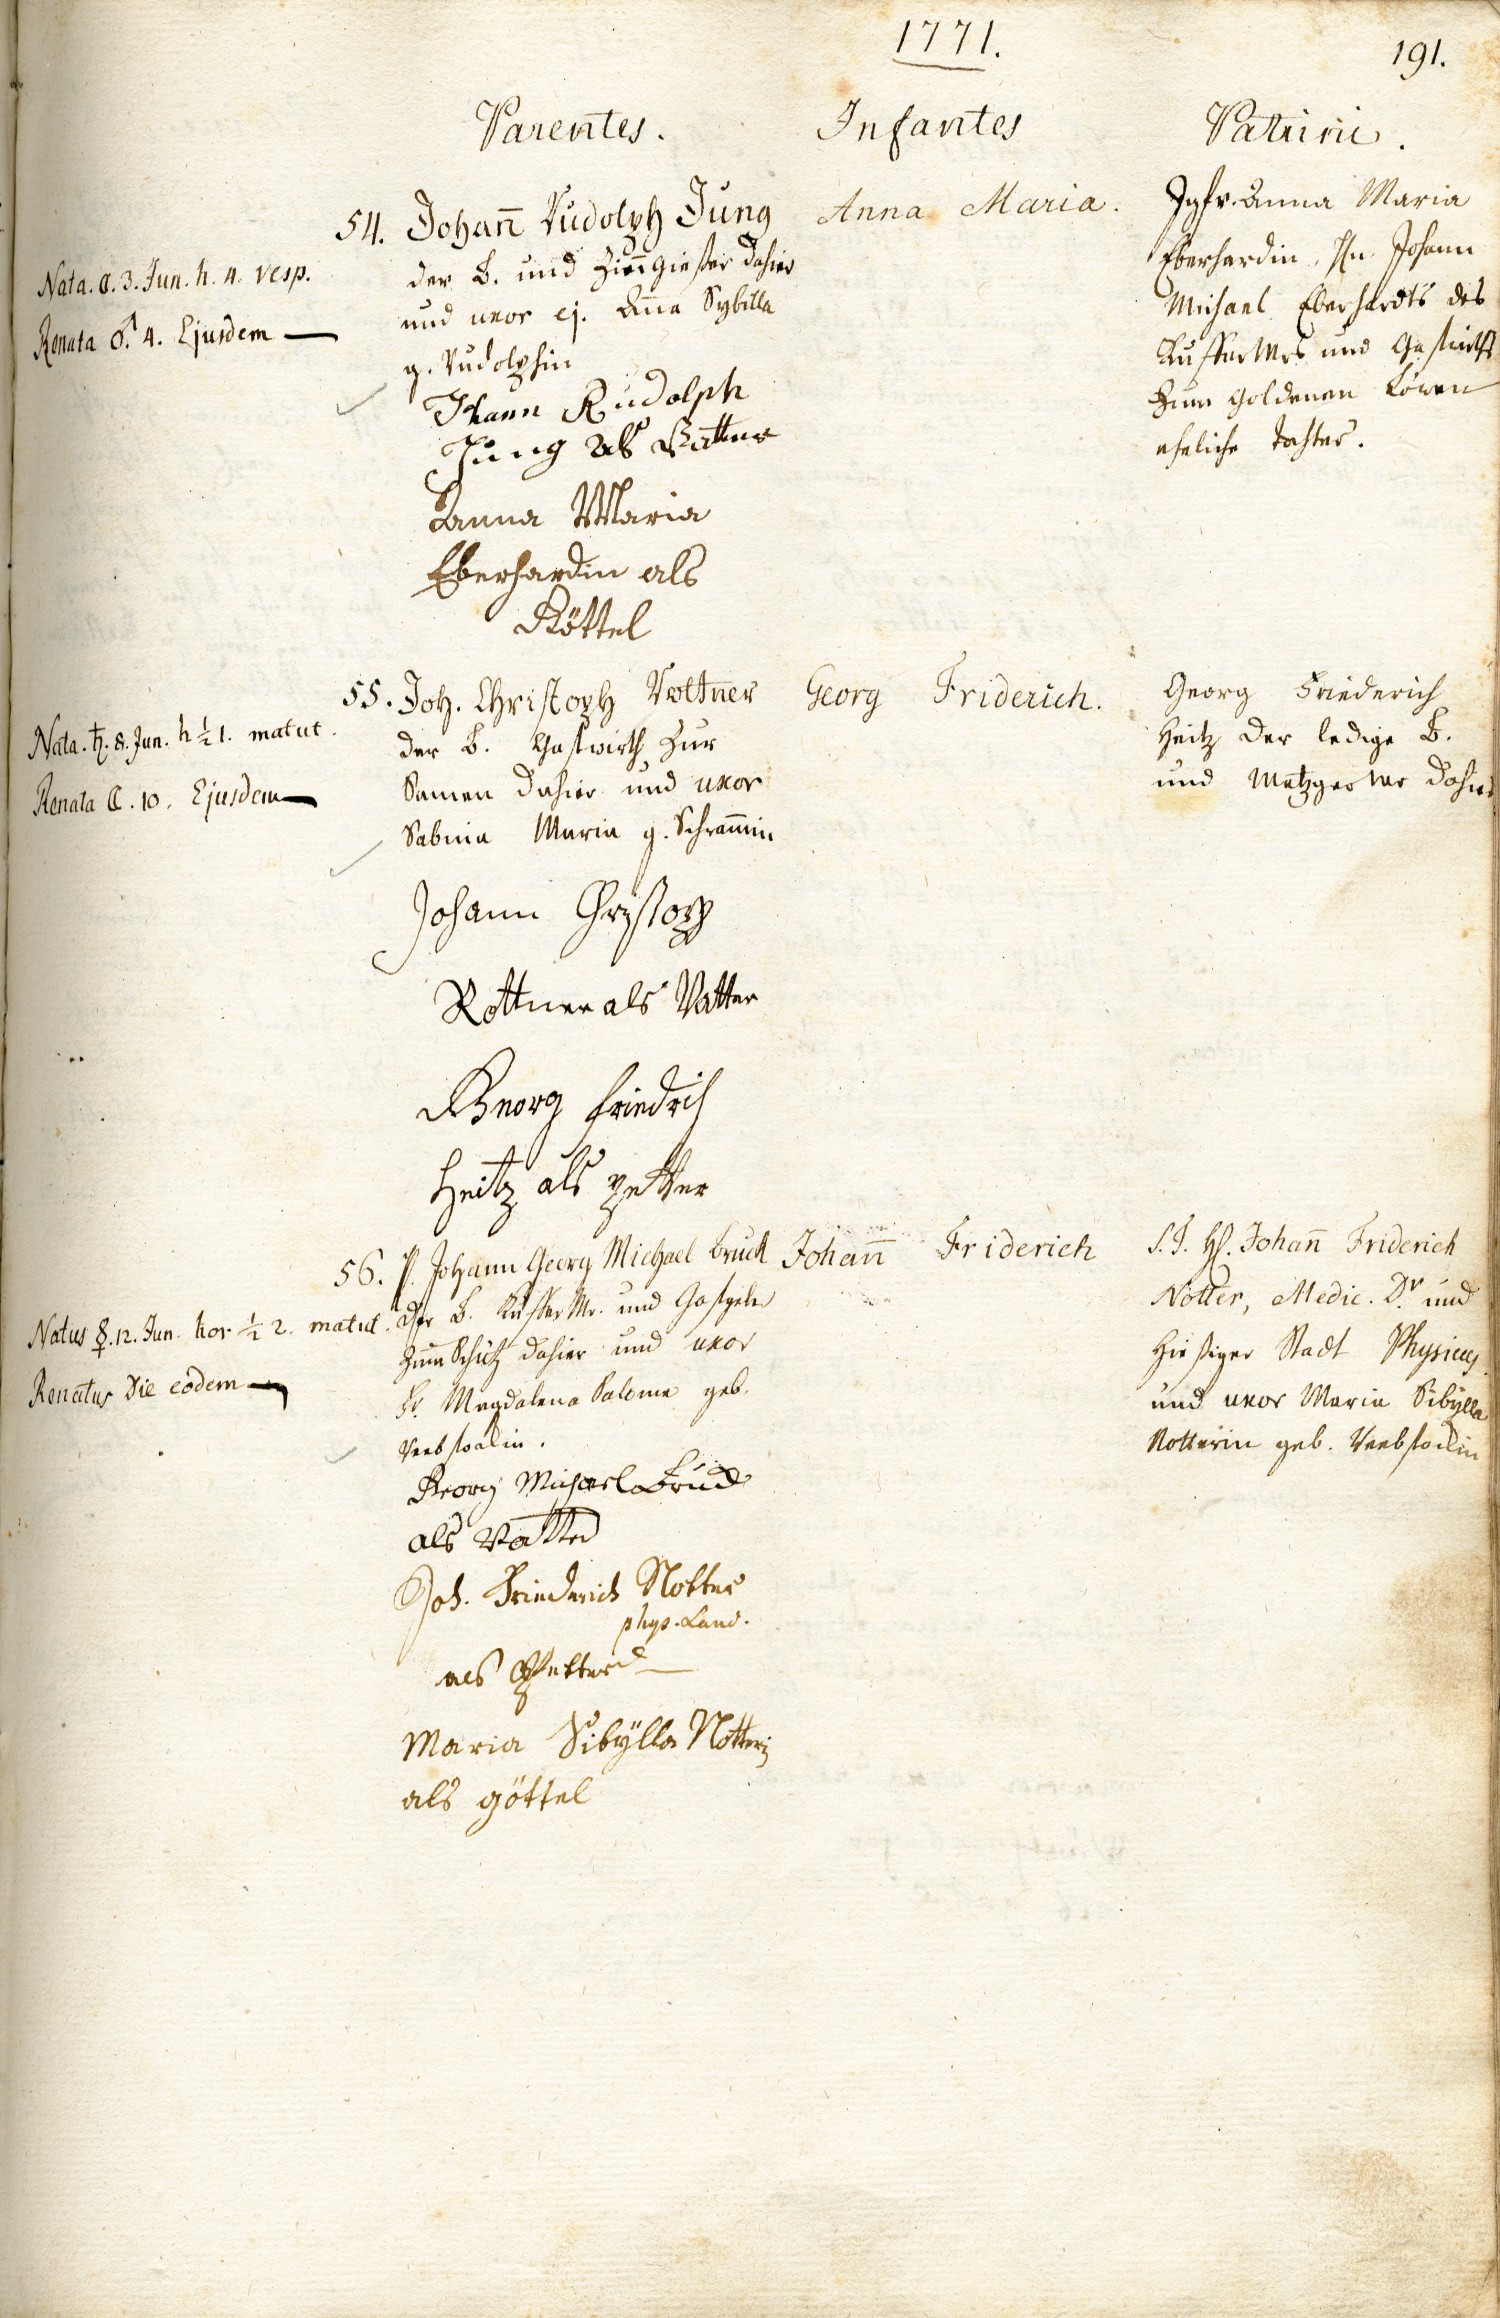 1771.
191.
Parentes.
Infantes
Patrini.
54. Johañ Rudolph Jung
der B. und Zinngießer dahier
und uxor ej. Aña Sybilla
g. Rudolphin
Nata. ☾. 3. Jun. h. 4. vesp.
Renata ♂. 4. Ejusdem —
Johann Rudolph
Jung als Vatter
Anna Maria
Eberhardin als
Göttel
Anna Maria.
Jgfr. Anna Maria
Eberhardin, Hn. Johann
Michael Eberhardts des
Kuffer Mrs und Gastwirths
zum goldenen Löwen
eheliche Tochter.
55. Joh. Christoph Rottner
der B. Gastwirth zur
dahier und uxor
Sabina Maria g. Schram̄in
Nata. ♄. 8. Jun. h ½ 1. matut.
Renata ☾. 10. Ejusdem —
Johann Christoph
Rottner als Vatter
Georg Friedrich
Heitz als Petter
Georg Friderich.
Georg Friederich
Heitz der ledige B.
und Metzger Mr dahier
56. Johann Georg Michael Bruck
der B. Kuffer Mr. und Gastgeber
zum Schütz dahier und uxor
Fr. Magdalena Salome geb.
Natus ☿. 12. Jun. hor ½ 2. matut.
Renatus die eodem —
Georg Michael Bruck
als Vatter
Joh. Friederich Notter
phys. Land.
als Pfetter —
Maria Sibÿlla Notterin
als göttel
Johañ Friderich
S. T. H. Johañ Friderich
Notter, Medic. Dr. und
hießiger Stadt Physicus
und uxor Maria Sibÿlla
Notterin geb.